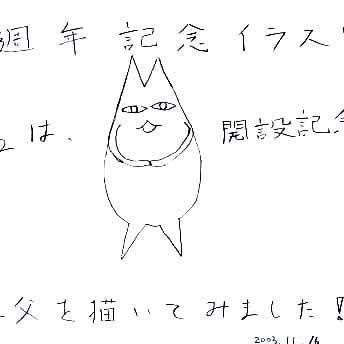 週年記念イラスト
は、 開設記念
父を描いてみました!
2003.11.16